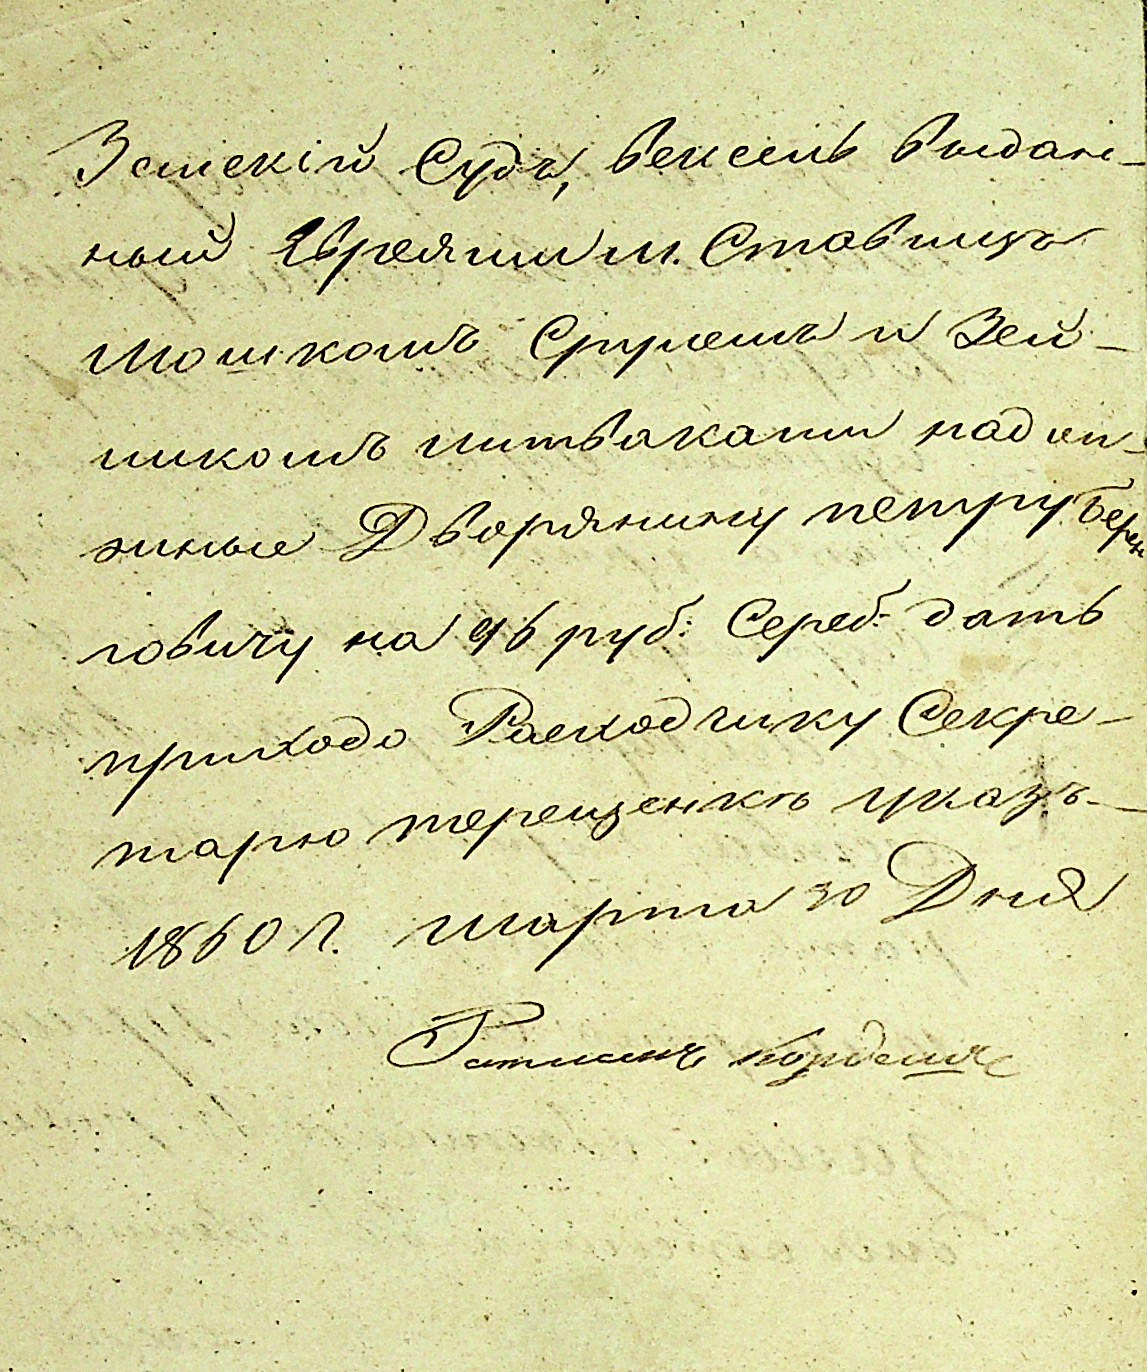 Земскій Судъ, вексель выдан-
ный Евреями м. Ставищъ
Мошкомъ Сру и Зей-
ликомъ Литваками
Дворянину Петру Берен
говичу на 96 руб: Сереб: дать
приходо Расходчику Секре-
тарю Терещенкѣ указъ.—
1860 г. Марта 30 Дня